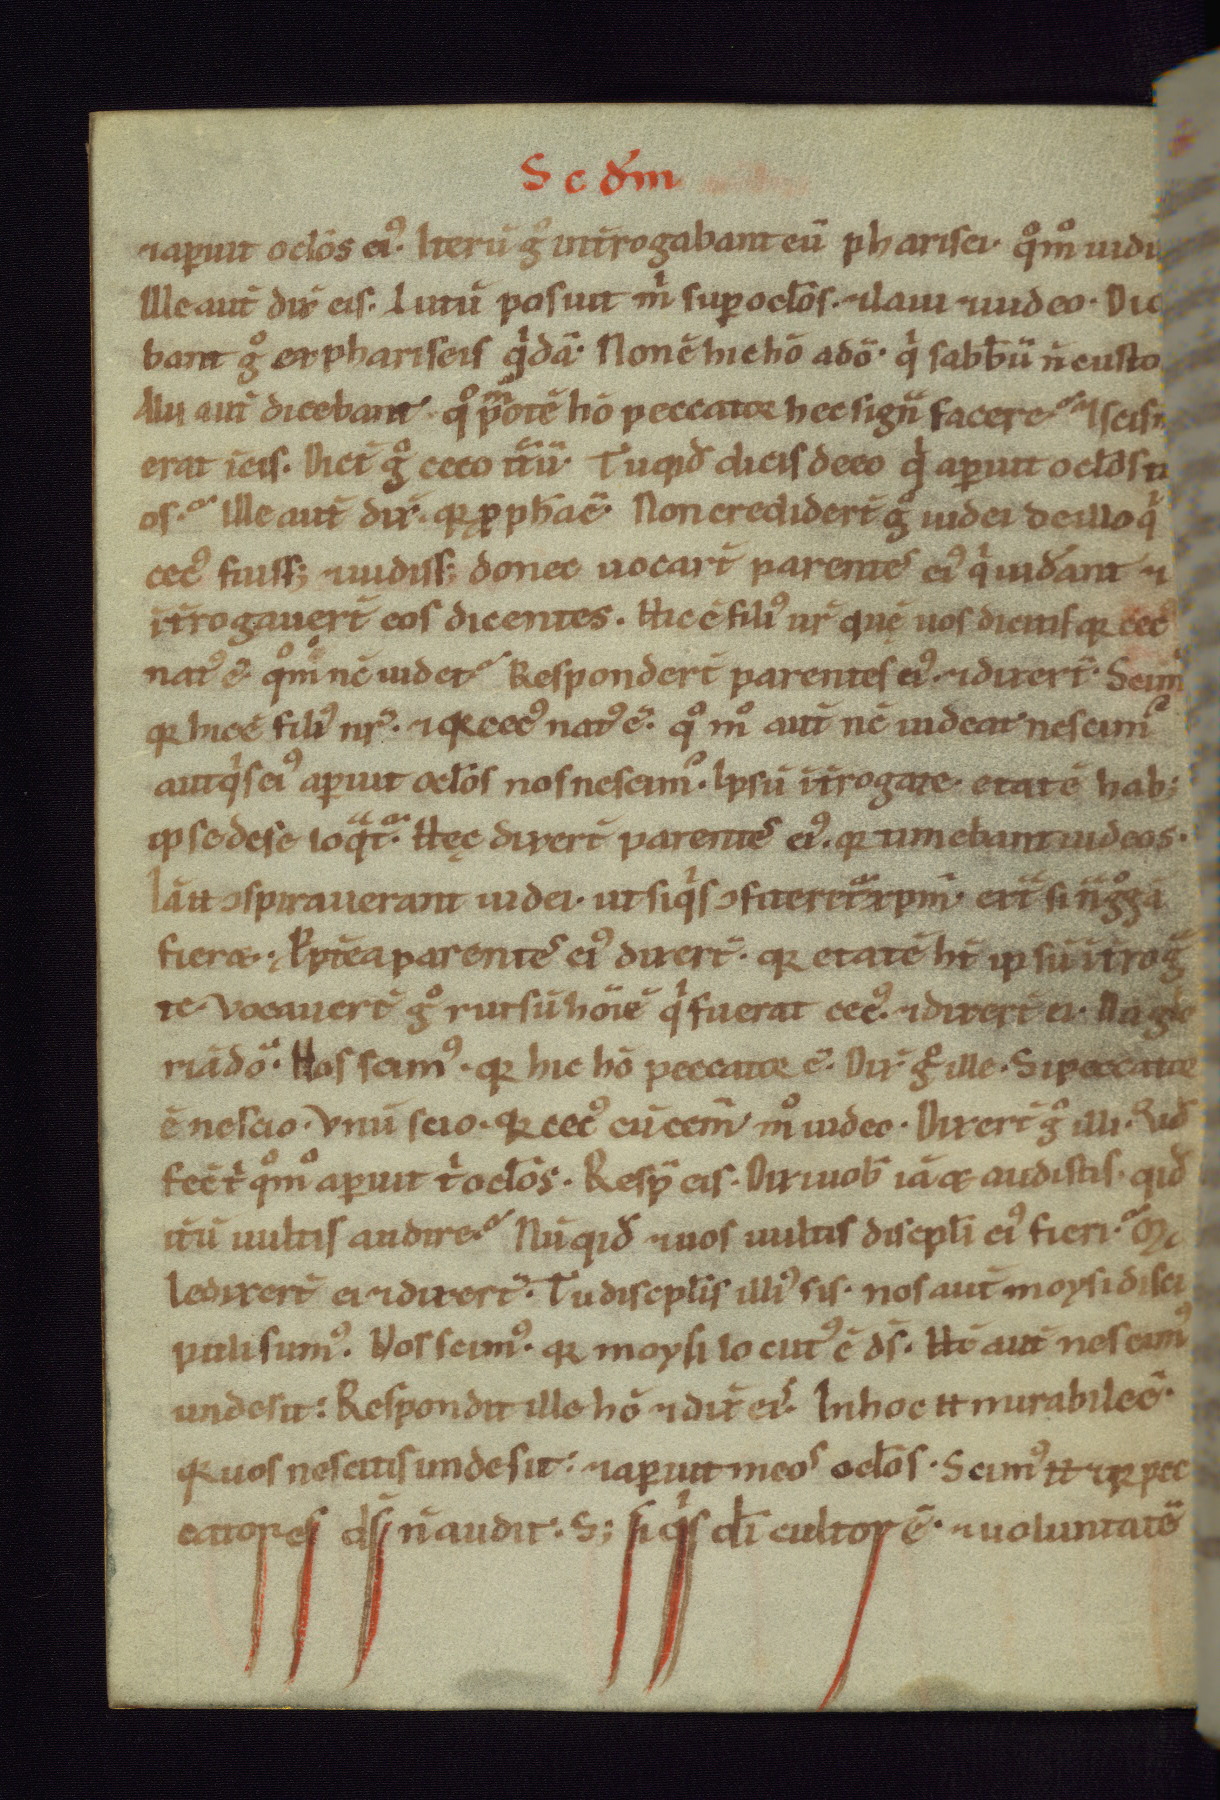 Scdm̄
⁊aperuit oclōs ei᾽. Iterū gͦ int̄rogabant eū pharisei. qͦmͦ uidi
Ille aut̄ dix̄ eis. Lutū posuit m̄ sup oclōs. ⁊laui ⁊uideo. Dic
bant gͦ ex phariseis qⁱdā. Non ē hic hō adō. qⁱ sabb̄ū n̄ custo
Alii aut̄ dicebant. qͦmͦ potē hō peccator hec sign̄ facere. Iscis
erat ī eis. Dict̄ gͦ ceco it̄ū. Tu qid̄ dicis de eo qⁱ aperuit oclōs
os. Ille aut̄ dix̄. qr pph̄a ē. Non credidert̄ gͦ iudei de illo qⁱ
cec᾽ fuiss; ⁊uidiss; donec uocart̄ parentes ei᾽ qⁱ uid̄ant ⁊
īt̄rogauert̄ eos dicentes. Hic ē fili᾽ ur̄ quē uos dicitis qr cec᾽
nat᾽ ē. qͦmͦ nc̄ uidet. Respondert̄ parentes ei᾽. ⁊dixert̄. Scim᾽
qr hic ē fili᾽ nr̄. ⁊qr cec᾽ nat᾽ ē. qͦ mͦ aut̄ nc̄ uideat nescim᾽
aut qⁱs ei᾽ aperuit oclōs nos nescim᾽. Ipsū īt̄rogate. etatē hab;
ipse de se loqͣt᾽. Hęc dixert̄ parentes ei᾽. qr timebant iudeos.
Iā tt ɔspirauerant iudei. ut si qⁱs ɔfiteret᾽ xpm̄. ext̄ sinͣgͦgā
fieret. Ppt̄ea parentes ei᾽ dixert̄. qr etatē ht̄ ipsū īt̄rogā
te. Vocauert̄ gͦ rursū hōīē qⁱ fuerat cec᾽. ⁊dixert̄ ei. Da glo
riā dō. Nos scim᾽. qr hic hō peccator ē. Dix̄ gͦ ille. Si peccator
ē nescio. Vnū scio. qr cec᾽ cū eēm̄ mͦ uideo. Dixert̄ gͦ illi. Qid̄
fec̄ tⁱ qͦmͦ aperuit tⁱ oclōs. Resp̄ eis. Dixi uob̄ iā & audistis. qid̄
it̄ū uultis audire. Nūqid̄ ⁊uos uultis discpl̄i ei᾽ fieri. Ma
ledixert̄ ei ⁊dixert̄. Tu discpl̄is illi᾽ sis. nos aut̄ moysi disci
puli sum᾽. Nos scim᾽. qr moysi locut᾽ ē ds̄. Hc̄ aut̄ nescim᾽
unde sit. Respondit ille hō ⁊dix̄ eis. In hoc tt mirabile ē.
qr uos nescitis unde sit. ⁊aperuit meos oclōs. Scim᾽ tt ⁊qr pec
catores ds̄ n̄ audit. S; si qⁱs dī cultor ē. ⁊uoluntatē